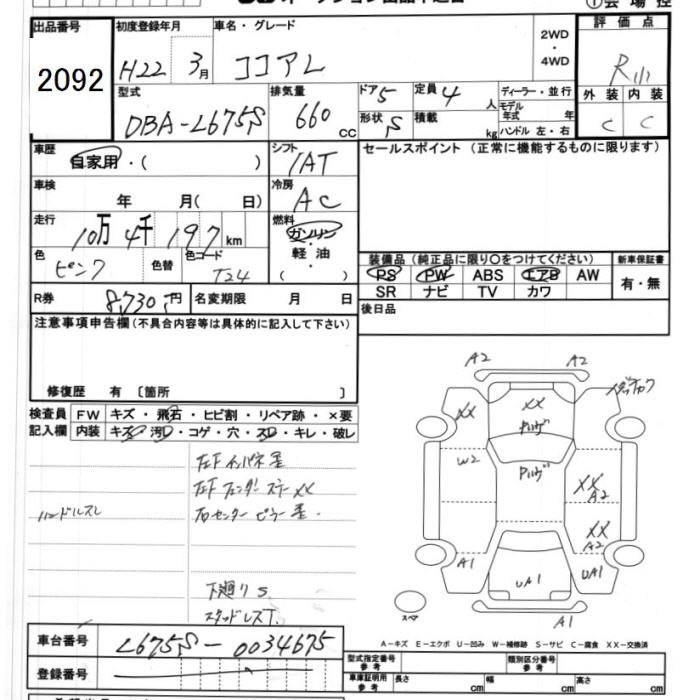 出品番号 初度登録年月 車名・グレード 2WD ・ 4WD 評価点
2092 H22 3月 ココアL R
型式 排気量 ドア 5 定員 4 人 ディーラー・並行 外装 内装
DBA-L675S 660 cc 形状 S 積載 kg モデル年式 年 C C
ハンドル 左・右
車歴 自家用・( ) シフト IAT セールスポイント (正常に機能するものに限ります)
車検 年 月( 日) 冷房 AC
走行 10万4千197km 燃料 ガソリン・軽油・( )
色 ピンク 色替 色コード T24
装備品(純正品に限り○をつけてください) 新車保証書
PS PW ABS エアB AW 有・無
SR ナビ TV カワ
R券 8,730円 名変期限 月 日 後日品
注意事項申告欄(不具合内容等は具体的に記入して下さい)
修復歴 有 〔箇所 〕
検査員 FW キズ・飛石・ヒビ割・リペア跡・×要
記入欄 内装 キズ・汚レ・コゲ・穴・スレ・キレ・破レ
左Fインパネ歪
左FフェンダーステーXX
ハンドルスレ 右センターピラー歪.
下廻りS
スタッドレスT.
A2 A2
XX XX
W2
XX A2
XX A2
A1 UA1 UA1
A1
スペア
A-キズ E-エクボ U-凹み W-補修跡 S-サビ C-腐食 XX-交換済
車台番号 L675S-0034675
登録番号
型式指定番号参考 類別区分番号参考
車庫証明用参考 長さ cm 幅 cm 高さ cm